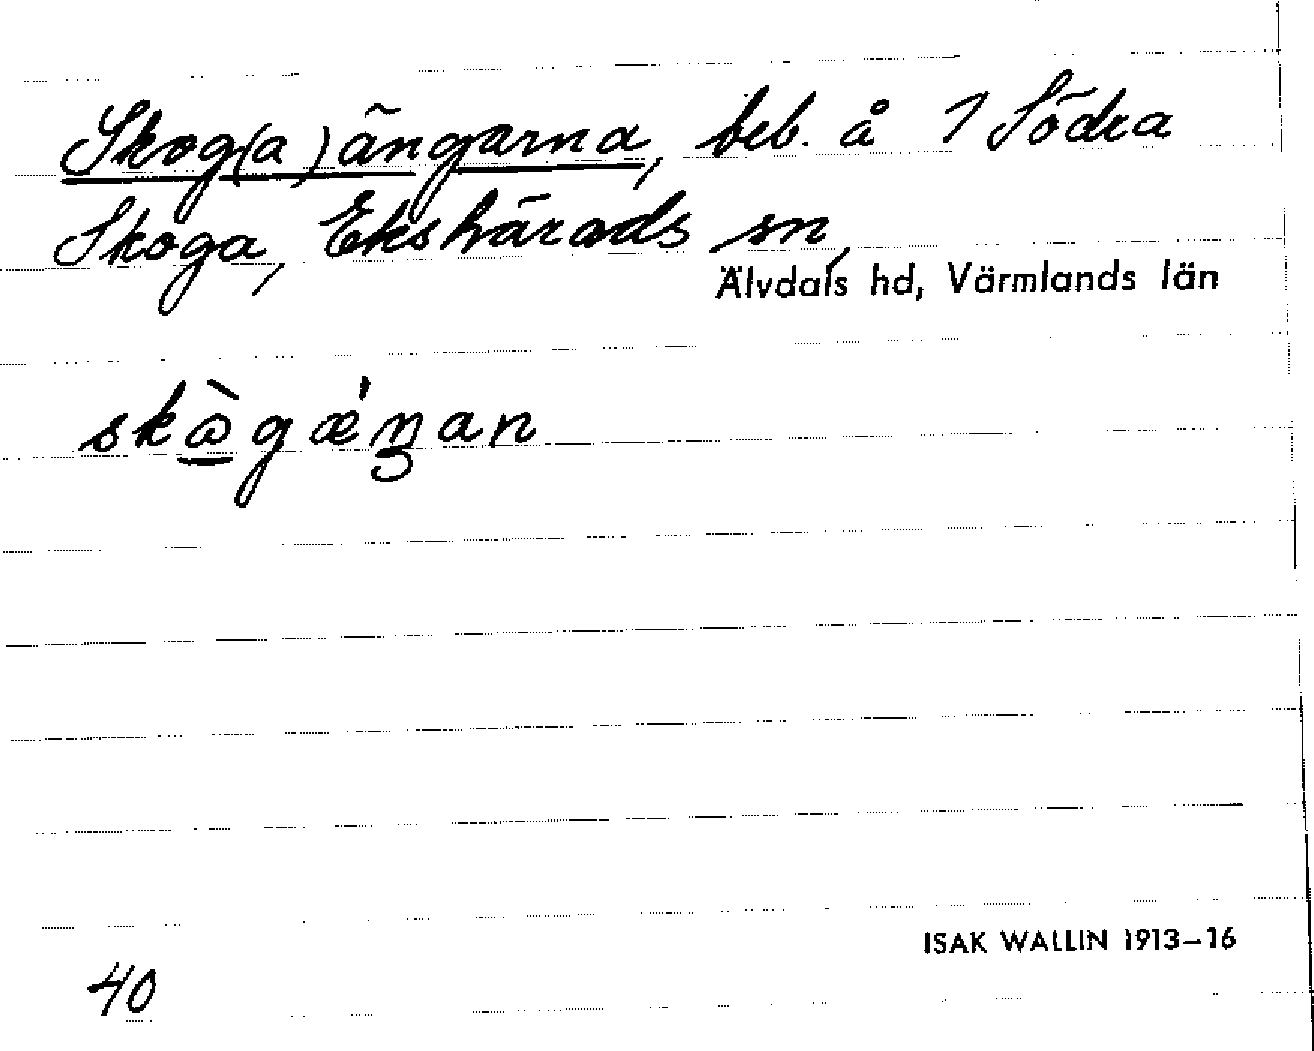 Skog(a)ängarna, beb. å 1 Södra
Skoga, Ekshärads sn,
Älvdals hd, Värmlands län
skò̲gǽŋan
ISAK WALLIN 1913–16
40